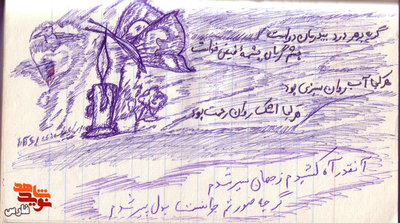 گریه بر هر درد بیدرمان دواست
چشم گریان چشمهٔ فیض خداست
هر کجا آب روان سبزی بود
هر کجا اشک روان رحمت بود
آنقدر آه کشیدم ز جهان سیر شدم
گر چه صورتم جوانست بدل پیر شدم
شاهد
نوید
فارس